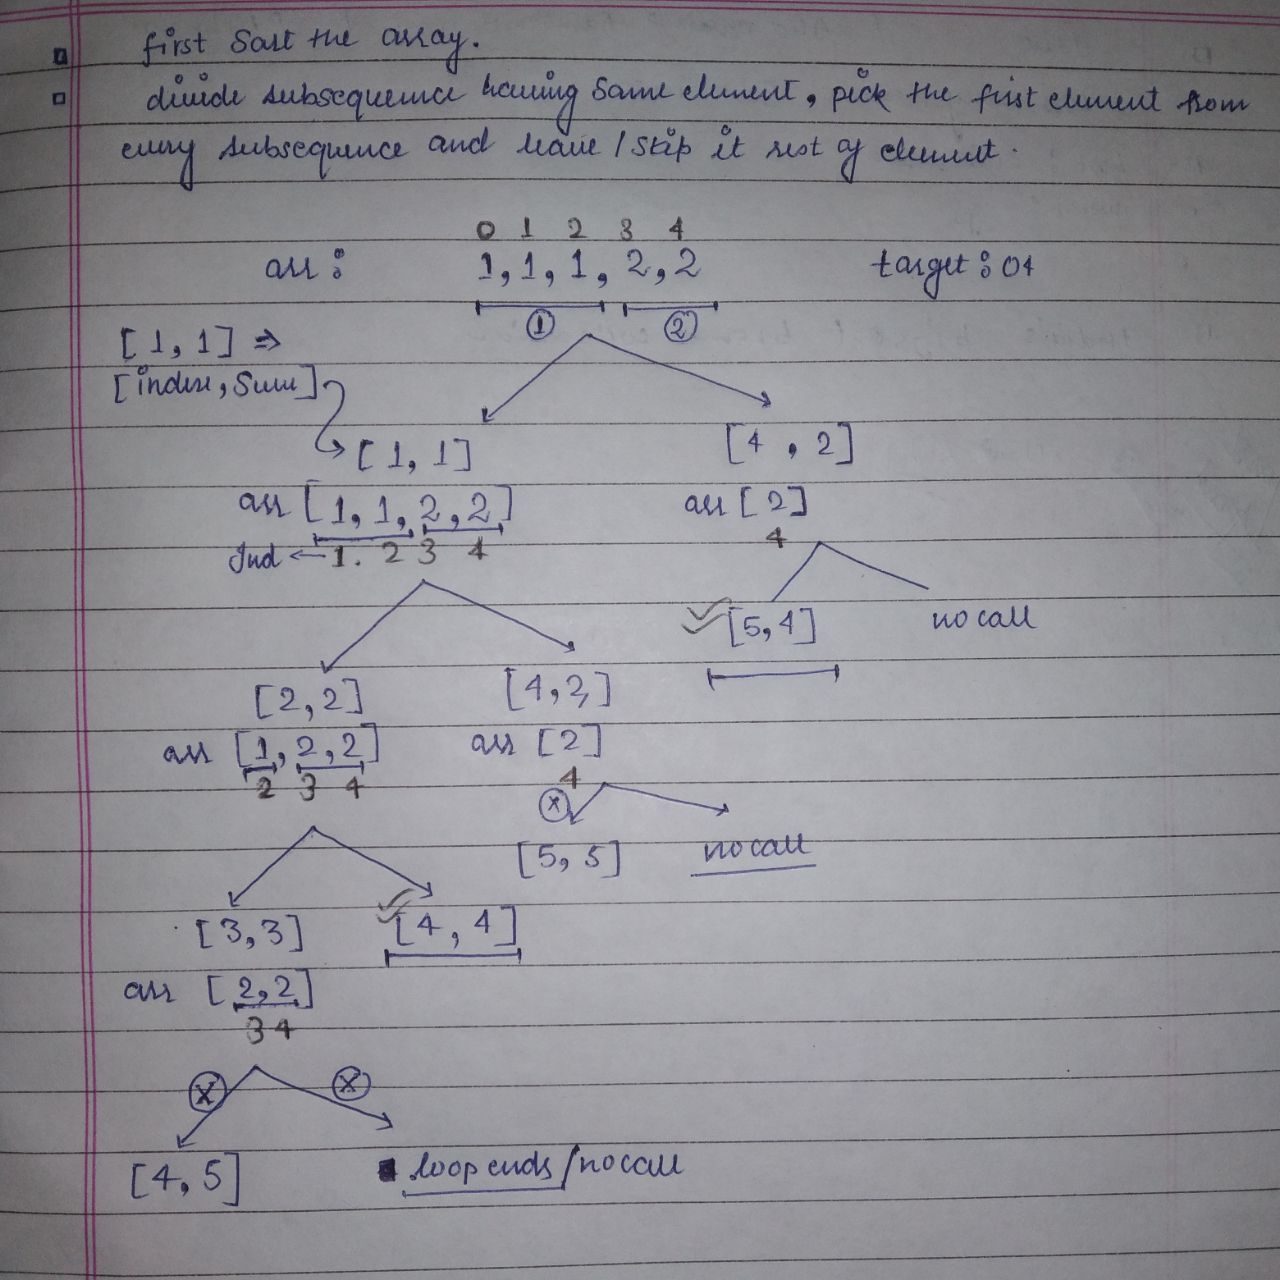 first sort the array.
divide subsequence having same element, pick the first element from
every subsequence and leave / skip it rest of element.
0 1 2 3 4
arr : 1, 1, 1, 2, 2 target : 04
① ②
[1, 1] ⇒
[index, sum]
[1, 1] [4, 2]
arr [1, 1, 2, 2] arr [2]
Ind ← 1. 2 3 4 4
[5, 4] no call
[2, 2] [4, 3]
arr [1, 2, 2] arr [2]
2 3 4 4
x
[5, 5] no call
[3, 3] [4, 4]
arr [2, 2]
3 4
x x
[4, 5] loop ends / no call